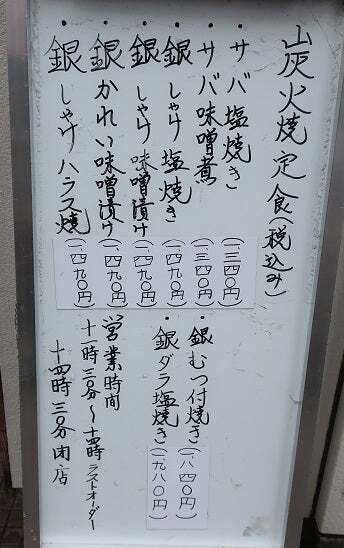 山炭火焼定食(税込み)
・サバ塩焼き(一、三四〇円)
・サバ味噌煮(一、三四〇円)
・銀しゃけ塩焼き(一、四九〇円)
・銀しゃけ味噌漬け(一、四九〇円)
・銀かれい味噌漬け(一、四九〇円)
・銀しゃけハラス焼(一、四九〇円)
・銀むつ付焼き(一、八四〇円)
・銀ダラ塩焼き(一、九八〇円)
営業時間
十一時三〇分〜十四時ラストオーダー
十四時三〇分閉店